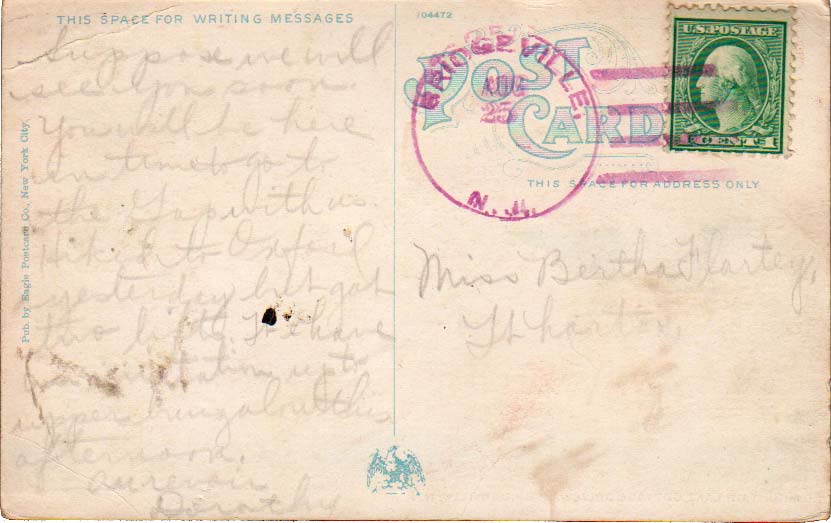 THIS SPACE FOR WRITING MESSAGES
Suppose we will
see you soon.
You will be here
in time to go to
the Gap with us.
Hiked to Oxford
yesterday but got
two lifts. We have
an invitation up to
upper bungalow this
afternoon.
au revoir
Dorothy
Pub. by Eagle Postcard Co., New York City.
104472
POST CARD
THIS SPACE FOR ADDRESS ONLY
BRIDGEVILLE,
AUG
25
N.J.
U.S. POSTAGE
1 CENTS 1
Miss Bertha Flartey,
Wharton,